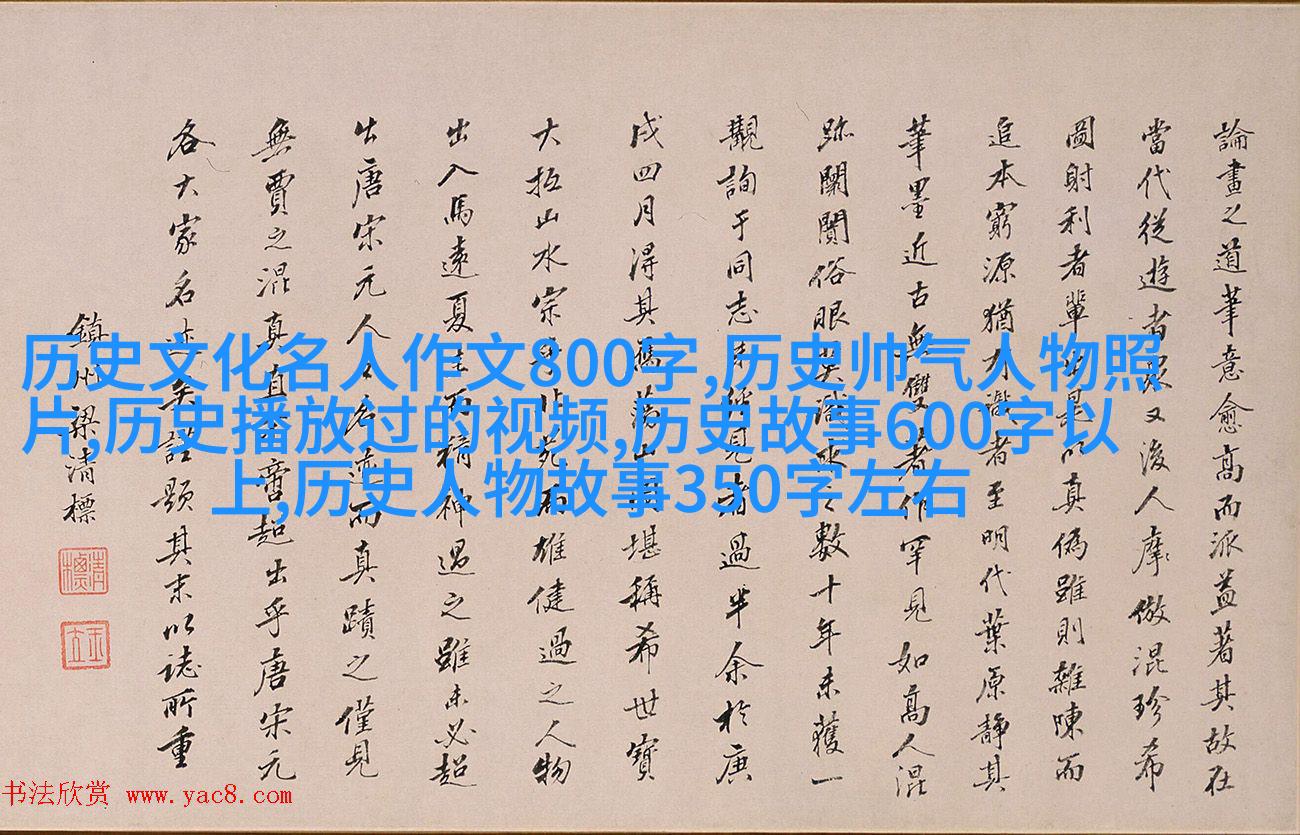 論畫之道筆意愈高而派益著其故在
當代從遊者眾又後人摩倣混珍希
圖射利者輩是以真僞雖則雜陳而
追本窮源猶有識者至明代葉原靜其
筆墨近古無雙著作罕見如高人混
跡闤闠俗眼莫識之數十年未獲一
觀詢于同志未經見者過半余於庚
戌四月得其舊山堪稱希世寶
大抵山水宗苑而雄健過之人物
出入馬遠夏圭而精神過之雖未必超
出唐宋元人之名迹而真蹟之僅見
無賈之混真直當超出乎唐宋元
各大家名迹矣註題其末以誌所重
鎮州梁清標
历史文化名人作文800字,历史帅气人物照
片,历史播放过的视频,历史故事600字以
上,历史人物故事350字左右
书法欣赏 www.yac8.com